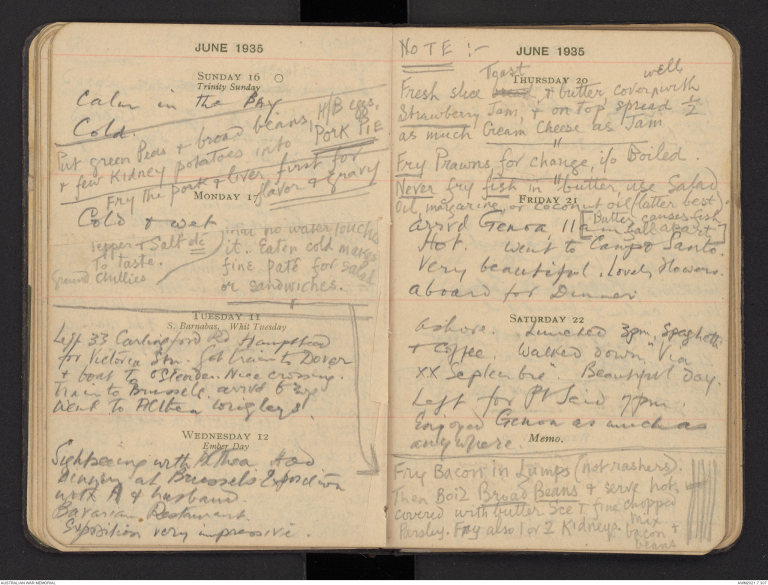 JUNE 1935
SUNDAY 16
Trinity Sunday
Calm in the Bay
Cold.
H/B eggs,
Pork Pie
Put green Peas & broad beans,
& few Kidney potatoes into
Fry the pork & liver first for
flavor & gravy
MONDAY 17
Cold & wet
pepper & Salt etc
to taste.
Ground chillies
no water touches
it. Eaten cold makes
fine Pate for salad
or sandwiches.
TUESDAY 11
S. Barnabas. Whit Tuesday
Left 33 Carlingford Rd Hampstead
for Victoria Stn. Got train to Dover
& boat to Ostende. Nice crossing.
Train to Brussels. arrvd 6
Went to Althea Wrigleys.
WEDNESDAY 12
Ember Day
Sightseeing with Althea. Had
Dinner at Brussels Exposition
with A & husband.
Bavarian Restaurant.
Exposition very impressive.
NOTE :-
JUNE 1935
THURSDAY 20
Toast well
Fresh slice bread, & butter, cover with
Strawberry Jam, & on top spread 1/2
as much Cream Cheese as Jam
"
Fry Prawns for change i/o Boiled.
"
Never fry fish in butter, use Salad
FRIDAY 21
Oil, margarine, or coconut oil, latter best.
[Butter causes fish
to fall apart]
arrvd Genoa 11am
Hot. Went to Campo Santo.
Very beautiful. Lovely flowers.
aboard for Dinner
SATURDAY 22
ashore. Lunched 3pm. Spaghetti
& Coffee. Walked down "Via
XX Septembre" Beautiful day.
Left for Pt Said 7pm.
Enjoyed Genoa as much as
anywhere.
Memo.
Fry Bacon in Lumps (not rashers).
Then Boil Broad Beans & serve hot,
covered with butter Sce & fine chopped
Parsley. Fry also 1 or 2 Kidneys.
Mix
bacon &
beans
AUSTRALIAN WAR MEMORIAL